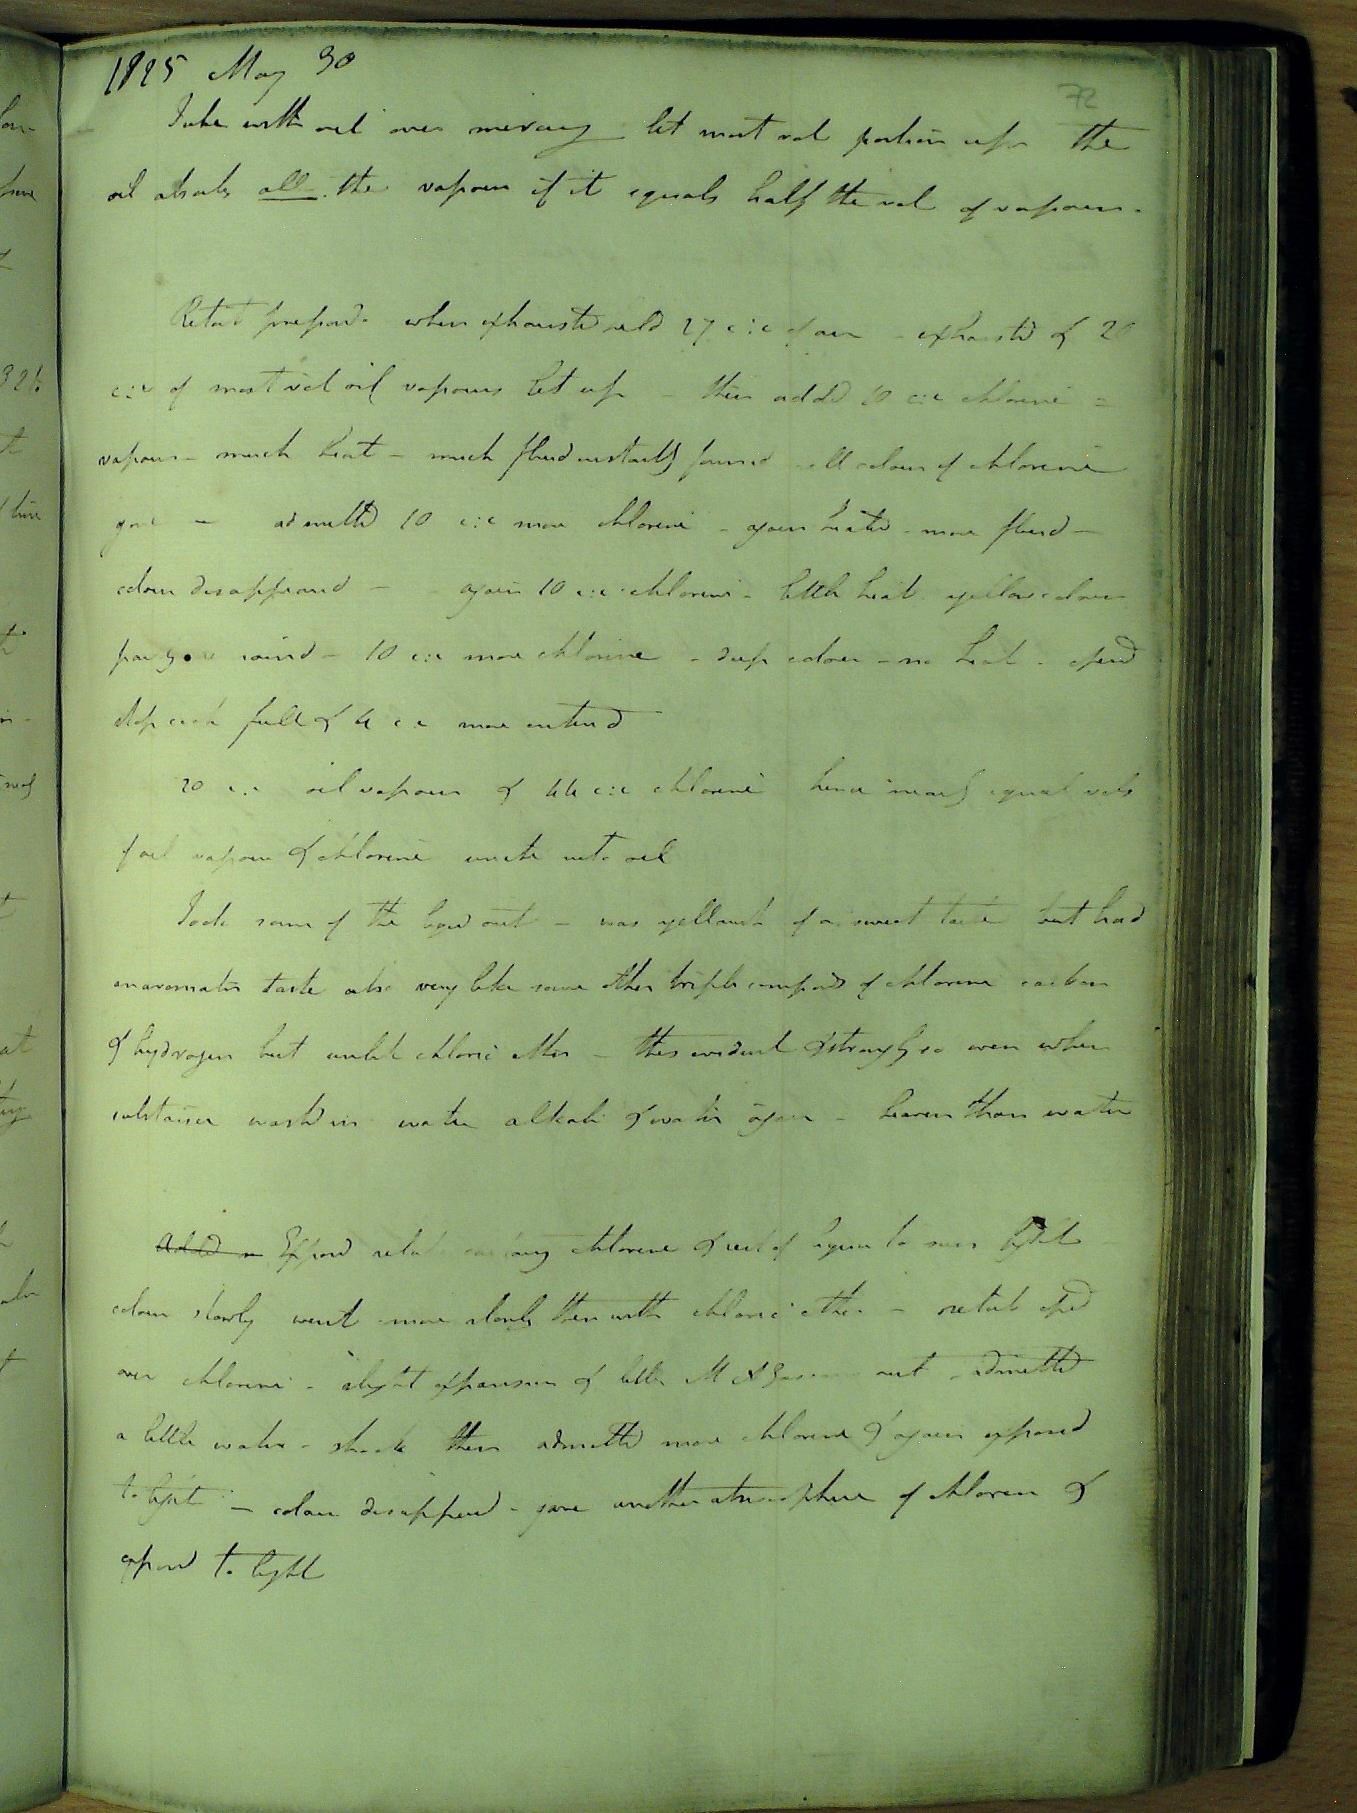 1825 May 30
72
Tube with oil over mercury let most vol portion up the
oil absorbs all the vapour if it equals half the vol of vapour.
Retort prepard when exhausted held 27 c:c of air - exhausted & 20
c:c of most vol oil vapours let up - then added 10 c:c chlorine =
vapour - much heat - much fluid instantly formed all colour of chlorine
gone - admitted 10 c:c more chlorine - again heated - more fluid -
colour disappeard - again 10 c:c chlorine - little heat yellow colour
remaind - 10 c:c more chlorine - deep colour - no heat - opend
stop cock full & 4 c:c more enterd
20 c:c oil vapour & 44 c:c chlorine hence nearly equal vols
of oil vapour & chlorine unite into oil
Took some of the liquid out - was yellowish of a sweet taste but had
an aromatic taste also very like some other triple compds of chlorine carbon
& hydrogen but unlike chloric ether - this evident & strongly so even when
substance washd in water alkali & water again - heavier than water
Added Exposd retort containing chlorine & rest of liquid to sun light
colour slowly went more slowly then with chloric ether - retort opd
over chlorine - slight expansion & little M A Gas out admitted
a little water - shook then admitted more chlorine & again exposed
to light - colour disappeard - gave another atmosphere of chlorine &
exposd to light